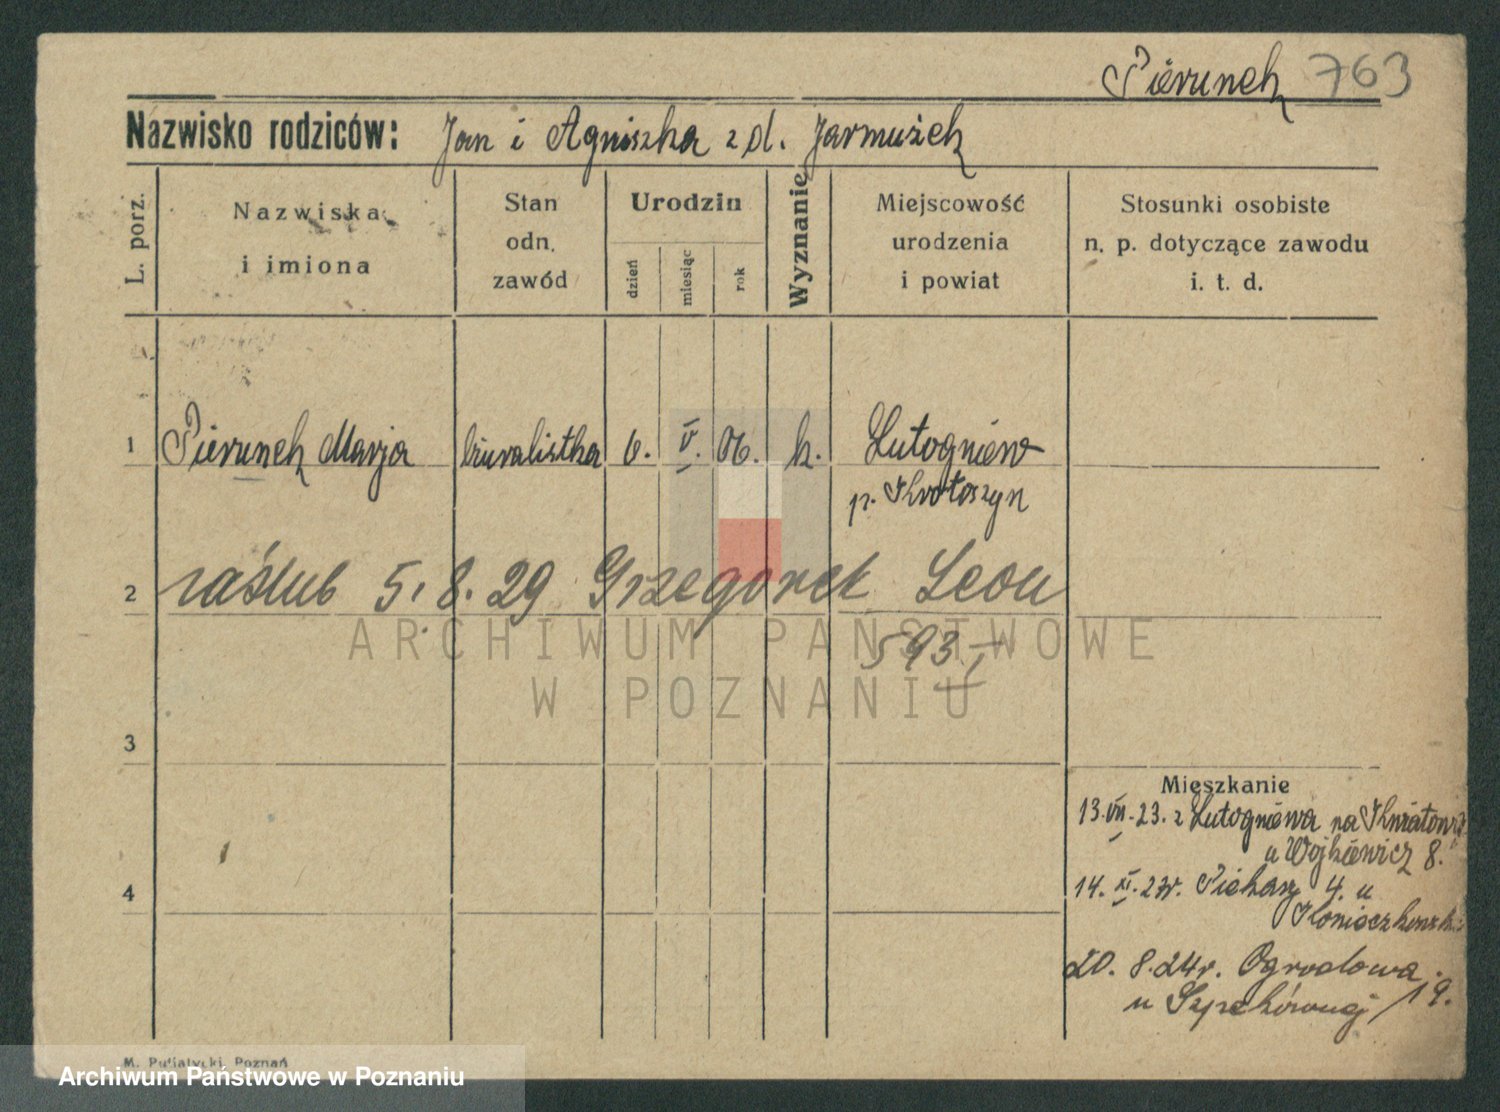 Pierunek 763
Nazwisko rodziców: Jan i Agniszka z d. Jarmużek
L. porz.
Nazwiska i imiona
Stan odn. zawód
Urodzin
dzień
miesiąc
rok
Wyznanie
Miejscowość urodzenia i powiat
Stosunki osobiste n. p. dotyczące zawodu i. t. d.
1 Pierunek Marja biuralistka 6. V. 06. k. Lutogniew
p. Krotoszyn
2 zaślub 5. 8. 29 Grzegorek Leon
593 I
3
Mieszkanie
13. VII. 23. z Lutogniewa na Kwiatową
u Wojkiewicz 8.
4
14. XI. 23r. Piekary 4. u
20. 8. 24r. Ogrodowa 19.
u
M. Putiatycki, Poznań
ARCHIWUM PAŃSTWOWE
W POZNANIU
Archiwum Państwowe w Poznaniu